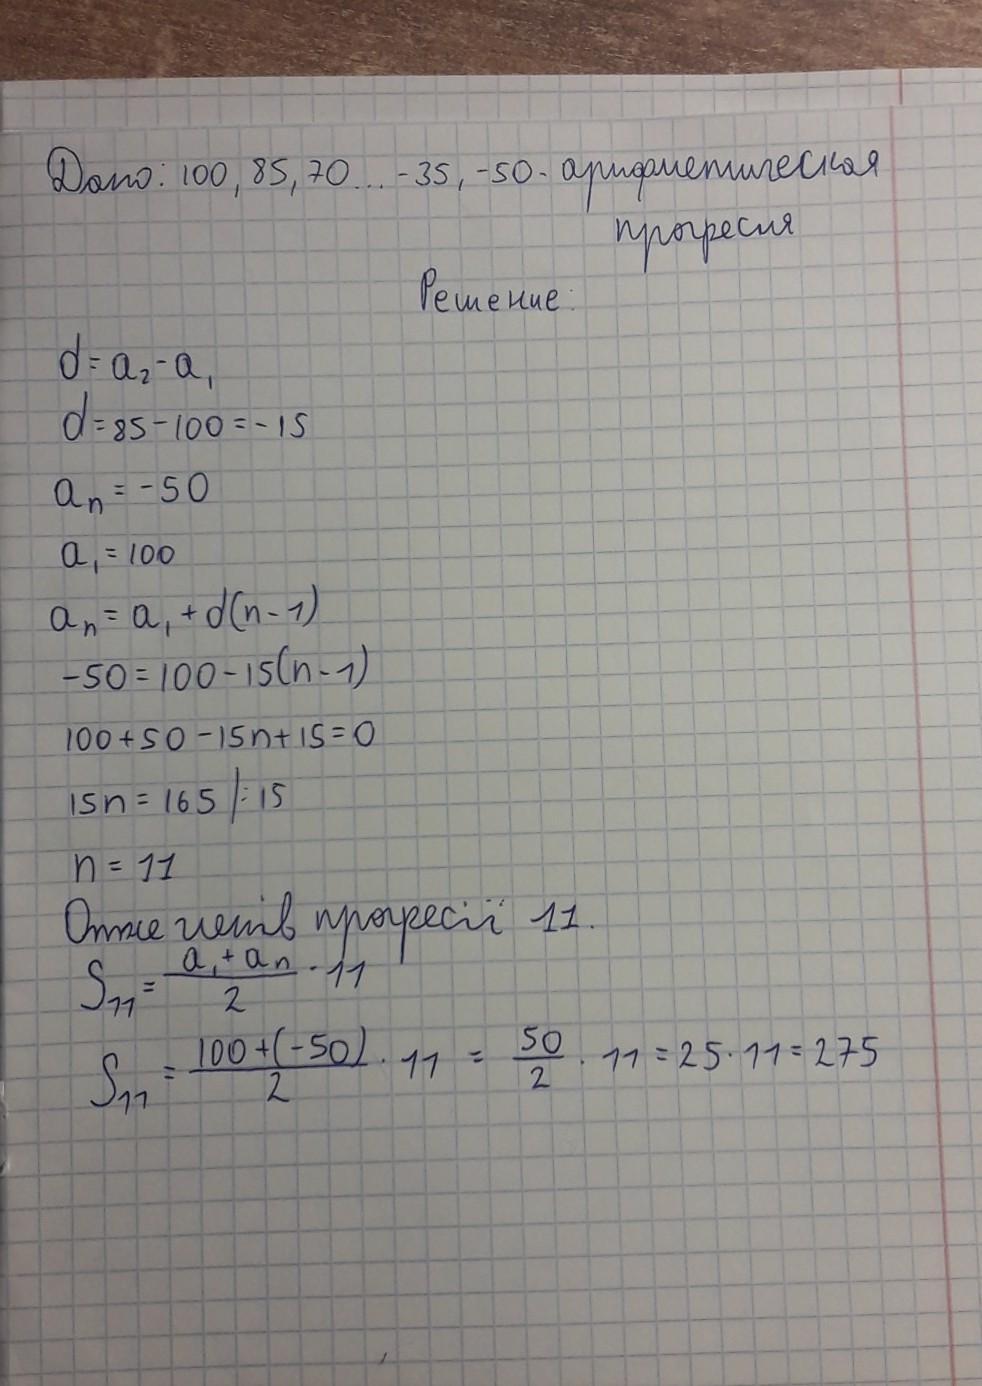 Дано: 100, 85, 70... -35, -50 - арифметическая
прогресия
Решение:
d = a₂ - a₁
d = 85 - 100 = -15
aₙ = -50
a₁ = 100
aₙ = a₁ + d(n - 1)
-50 = 100 - 15(n - 1)
100 + 50 - 15n + 15 = 0
15n = 165 |: 15
n = 11
Отже членів прогресії 11.
S₁₁ = (a₁ + aₙ)/2 · 11
S₁₁ = (100 + (-50))/2 · 11 = 50/2 · 11 = 25 · 11 = 275